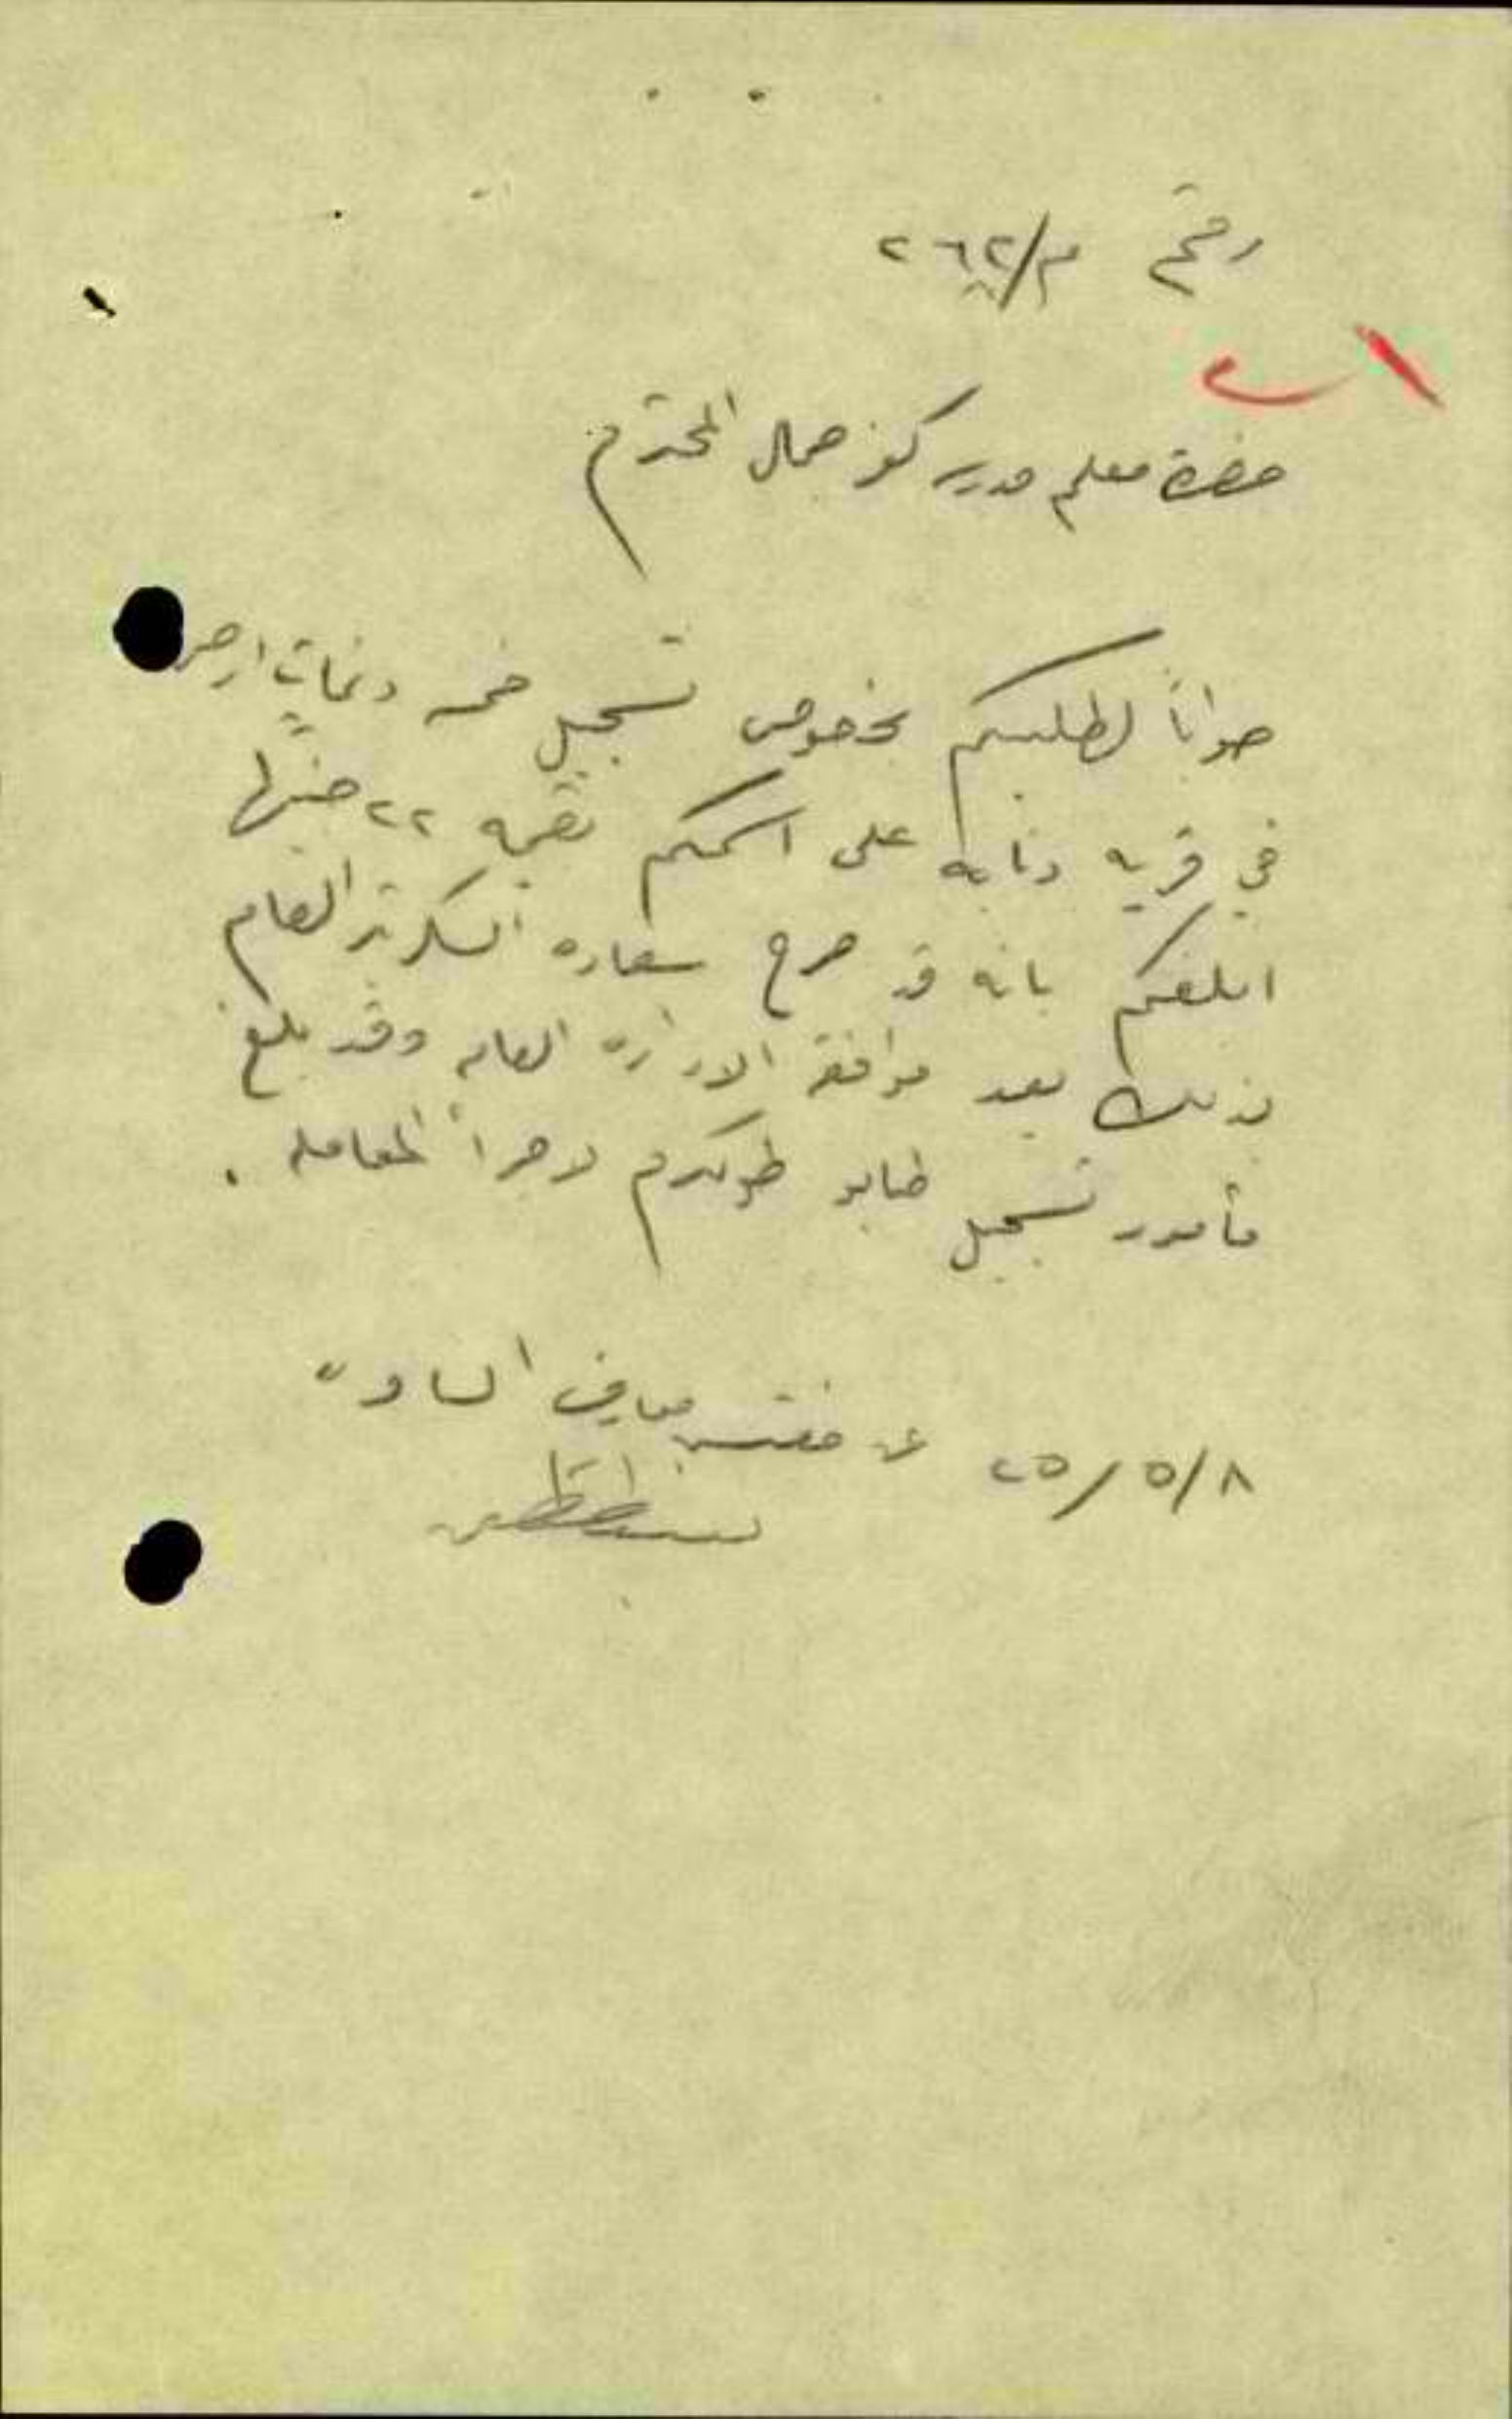 رقم م/٢٦٢
حضرة معلم مدرسة كفر جمال المحترم
جواباً لطلبكم بخصوص تسجيل خمسه دنمات ارض
في قريه دنابه على اسمكم بقيمه ٢٢ جنيها
ابلغكم بانه قد صرح سعاده السكرتير العام
بذلك بعد موافقة الاداره العامه وقد بلغ
مأمور تسجيل طابو طولكرم لاجراء المعامله .
٢٥/٥/٨ عن مفتش معارف السامره